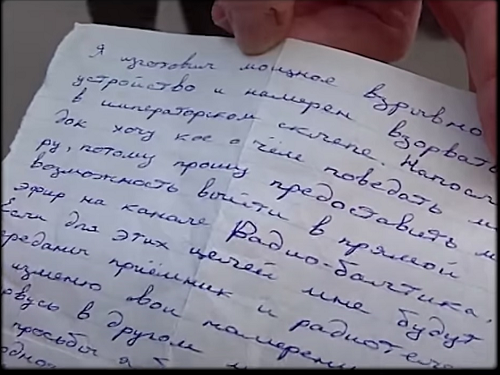 Я изготовил мощное взрывно
устройство и намерен взорвать
в императорском склепе. Напосл
док хочу кое о чём поведать м
ру, потому прошу предоставить м
возможность выйти в прямой
эфир на канале Радио-балтика,
Если для этих целей мне будут
ереданы приёмник и радиотеле
изменю свои намерени
рвусь в другом м
просьбы я
одно